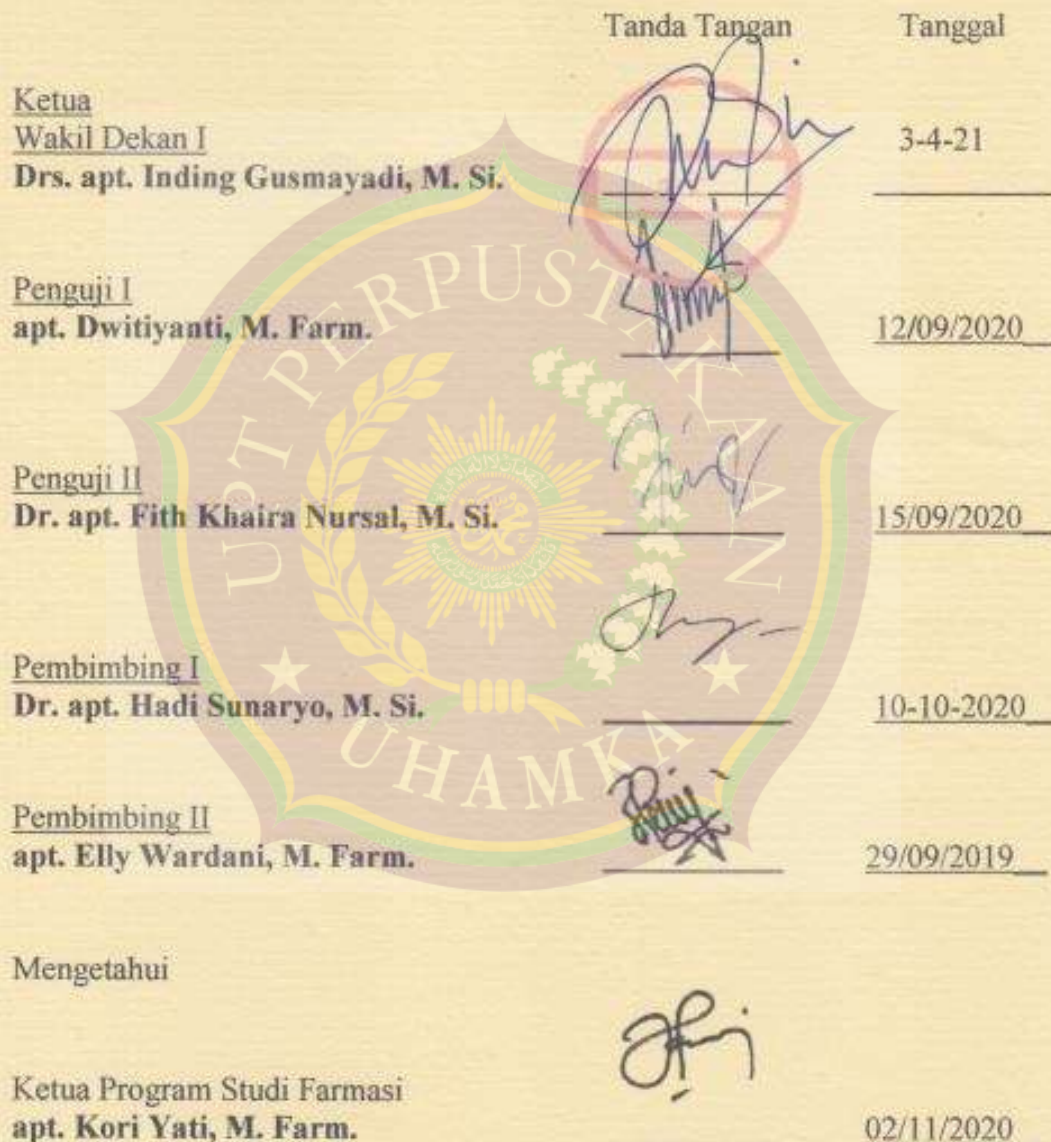 Tanda Tangan Tanggal
Ketua
Wakil Dekan I
Drs. apt. Inding Gusmayadi, M. Si. 3-4-21
Penguji I
apt. Dwitiyanti, M. Farm. 12/09/2020
Penguji II
Dr. apt. Fith Khaira Nursal, M. Si. 15/09/2020
Pembimbing I
Dr. apt. Hadi Sunaryo, M. Si. 10-10-2020
Pembimbing II
apt. Elly Wardani, M. Farm. 29/09/2019
Mengetahui
Ketua Program Studi Farmasi
apt. Kori Yati, M. Farm. 02/11/2020
UPT PERPUSTAKAAN
UHAMKA